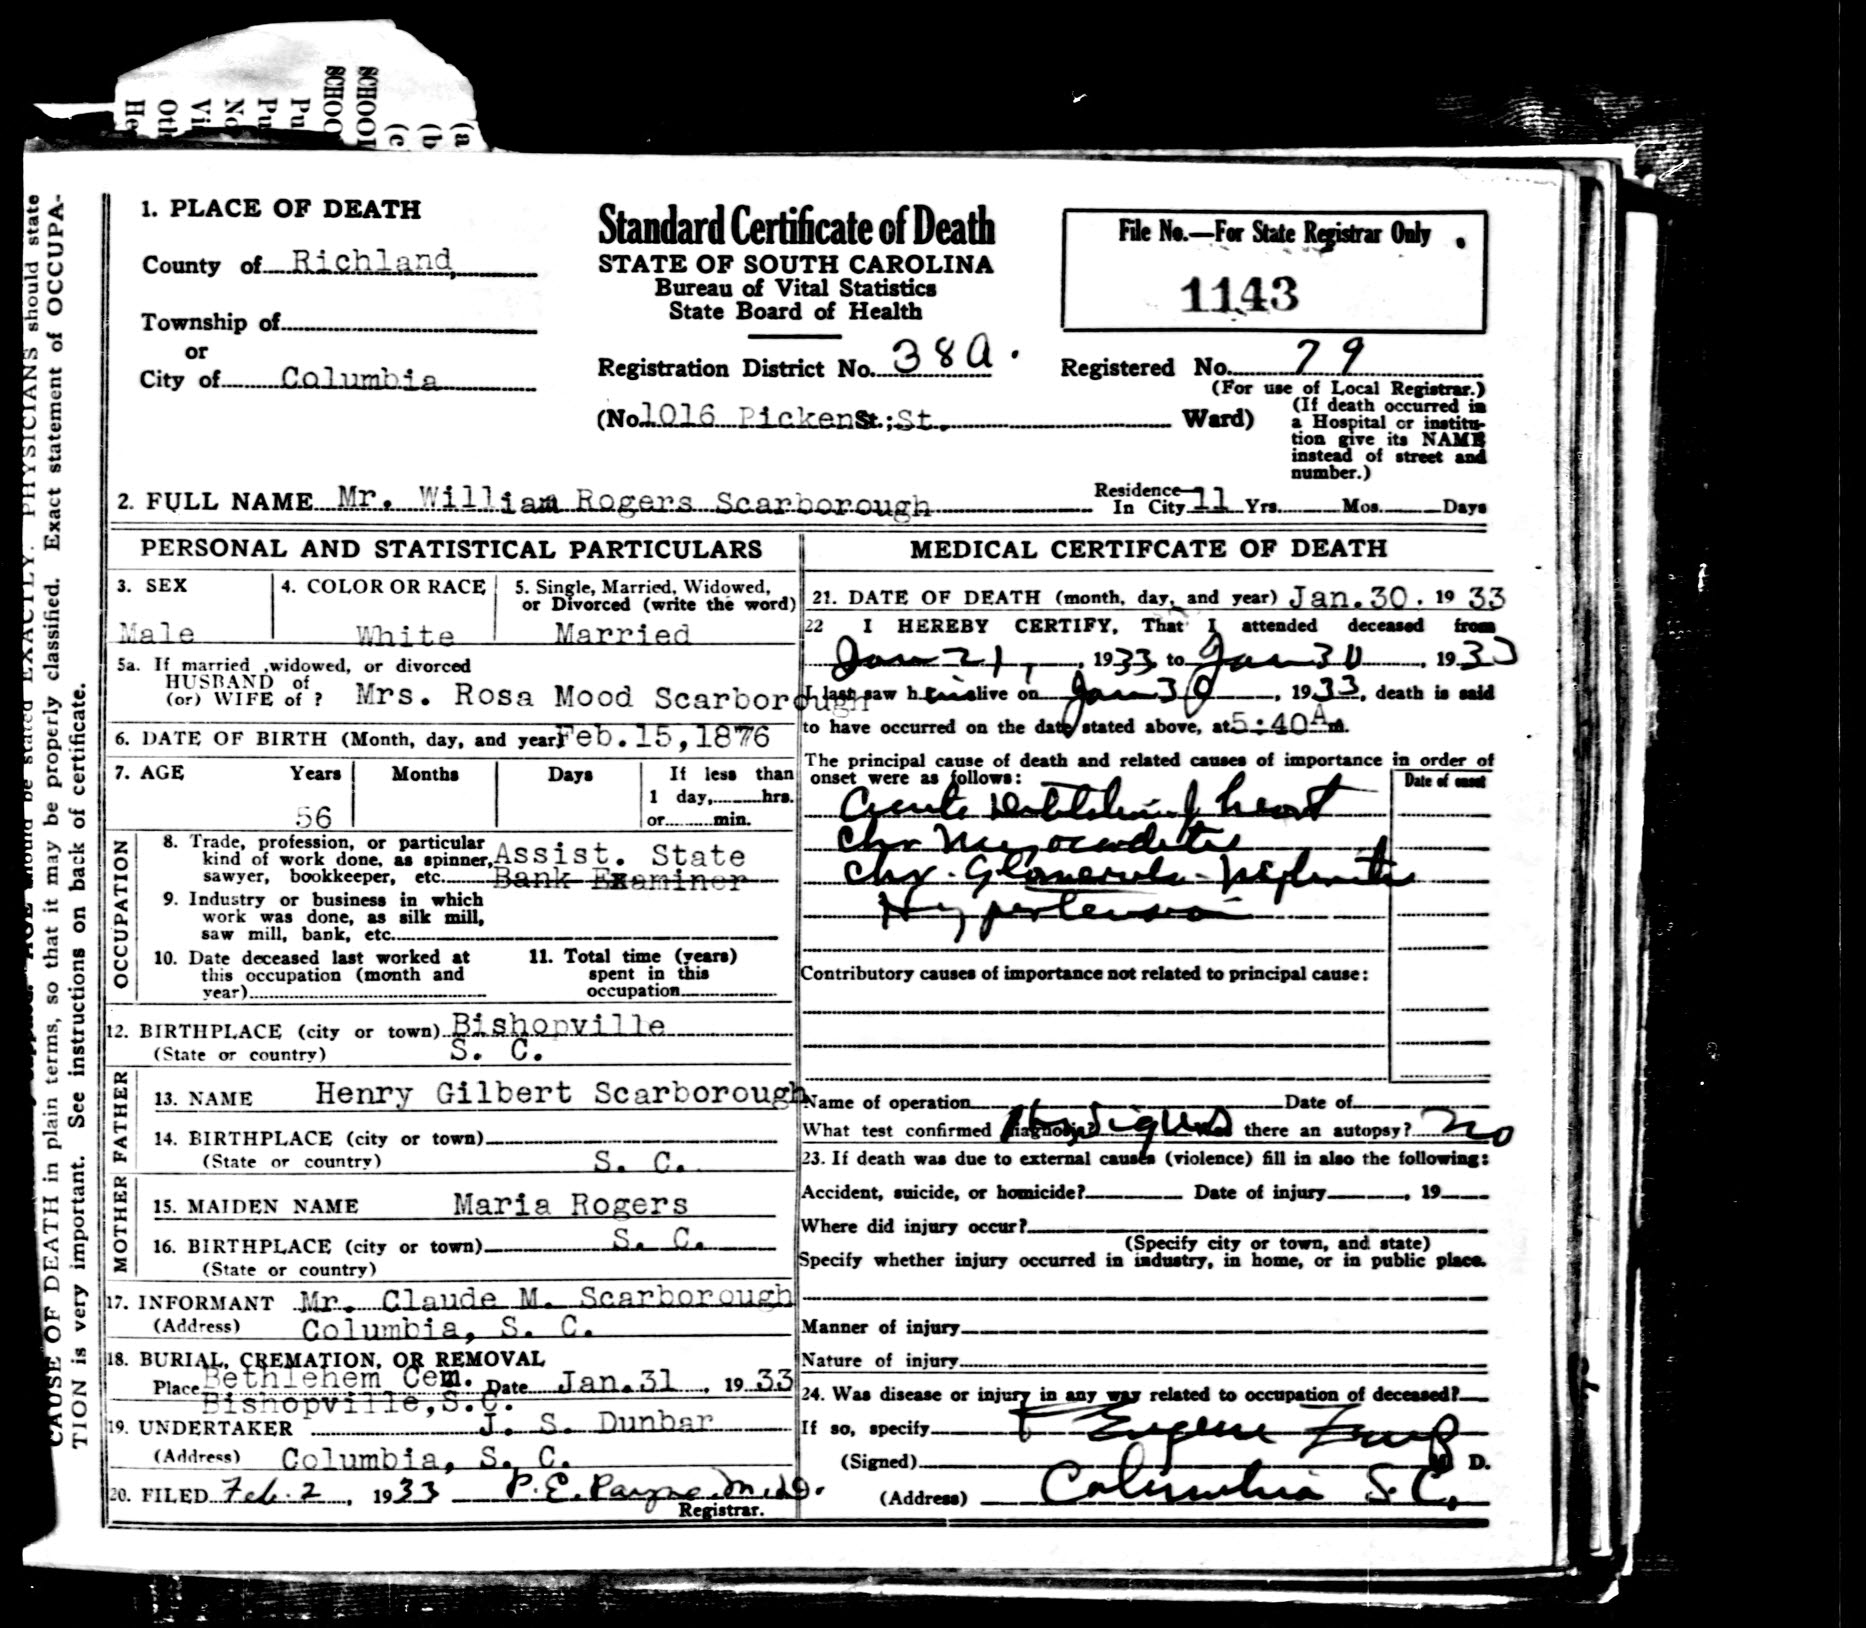 He
Oth
Vi
No
Pu
Pu
SCHOO
SCHOOL
(c
(b
(a
PHYSICIANS should state
CAUSE OF DEATH in plain terms, so that it may be properly classified. Exact statement of OCCUPA-
TION is very important. See instructions on back of certificate.
1. PLACE OF DEATH
County of Richland,
Township of
or
City of Columbia
Standard Certificate of Death
STATE OF SOUTH CAROLINA
Bureau of Vital Statistics
State Board of Health
File No.—For State Registrar Only
1143
Registration District No. 38A.
Registered No. 79
(For use of Local Registrar.)
(No. 1016 Pickens St.; St. Ward)
(If death occurred in
a Hospital or institu-
tion give its NAME
instead of street and
number.)
2. FULL NAME Mr. William Rogers Scarborough
Residence
In City 11 Yrs. Mos. Days
PERSONAL AND STATISTICAL PARTICULARS
3. SEX
Male
4. COLOR OR RACE
White
5. Single, Married, Widowed,
or Divorced (write the word)
Married
5a. If married ,widowed, or divorced
HUSBAND of
(or) WIFE of ? Mrs. Rosa Mood Scarborough
6. DATE OF BIRTH (Month, day, and year) Feb.15,1876
7. AGE Years Months Days If less than
1 day, hrs.
56 or min.
OCCUPATION
8. Trade, profession, or particular
kind of work done, as spinner, Assist. State
sawyer, bookkeeper, etc. Bank Examiner
9. Industry or business in which
work was done, as silk mill,
saw mill, bank, etc.
10. Date deceased last worked at
this occupation (month and
year)
11. Total time (years)
spent in this
occupation
12. BIRTHPLACE (city or town) Bishopville
(State or country) S. C.
FATHER
13. NAME Henry Gilbert Scarborough
14. BIRTHPLACE (city or town)
(State or country) S. C.
MOTHER
15. MAIDEN NAME Maria Rogers
16. BIRTHPLACE (city or town) S. C.
(State or country)
17. INFORMANT Mr. Claude M. Scarborough
(Address) Columbia, S. C.
18. BURIAL, CREMATION, OR REMOVAL
Place Bethlehem Cem. Date Jan.31, 1933
Bishopville,S.C.
19. UNDERTAKER J. S. Dunbar
(Address) Columbia, S. C.
20. FILED Feb. 2, 1933 P. E. Payne, M.D.
Registrar.
MEDICAL CERTIFCATE OF DEATH
21. DATE OF DEATH (month, day, and year) Jan.30. 1933
22 I HEREBY CERTIFY, That I attended deceased from
Jan 21, 1933, to Jan 30, 1933
I last saw him alive on Jan 30, 1933, death is said
to have occurred on the date stated above, at 5:40 A m.
The principal cause of death and related causes of importance in order of
onset were as follows:
Date of onset
Acute dilatation of heart
Chr Myocarditis
Chr. Glomerulo-Nephritis
Hypertension
Contributory causes of importance not related to principal cause:
Name of operation Date of
What test confirmed diagnosis? Phy Signs Was there an autopsy? No
23. If death was due to external causes (violence) fill in also the following:
Accident, suicide, or homicide? Date of injury , 19
Where did injury occur?
(Specify city or town, and state)
Specify whether injury occurred in industry, in home, or in public place.
Manner of injury
Nature of injury
24. Was disease or injury in any way related to occupation of deceased?
If so, specify
(Signed) Eugene M. D.
(Address) Columbia S.C.